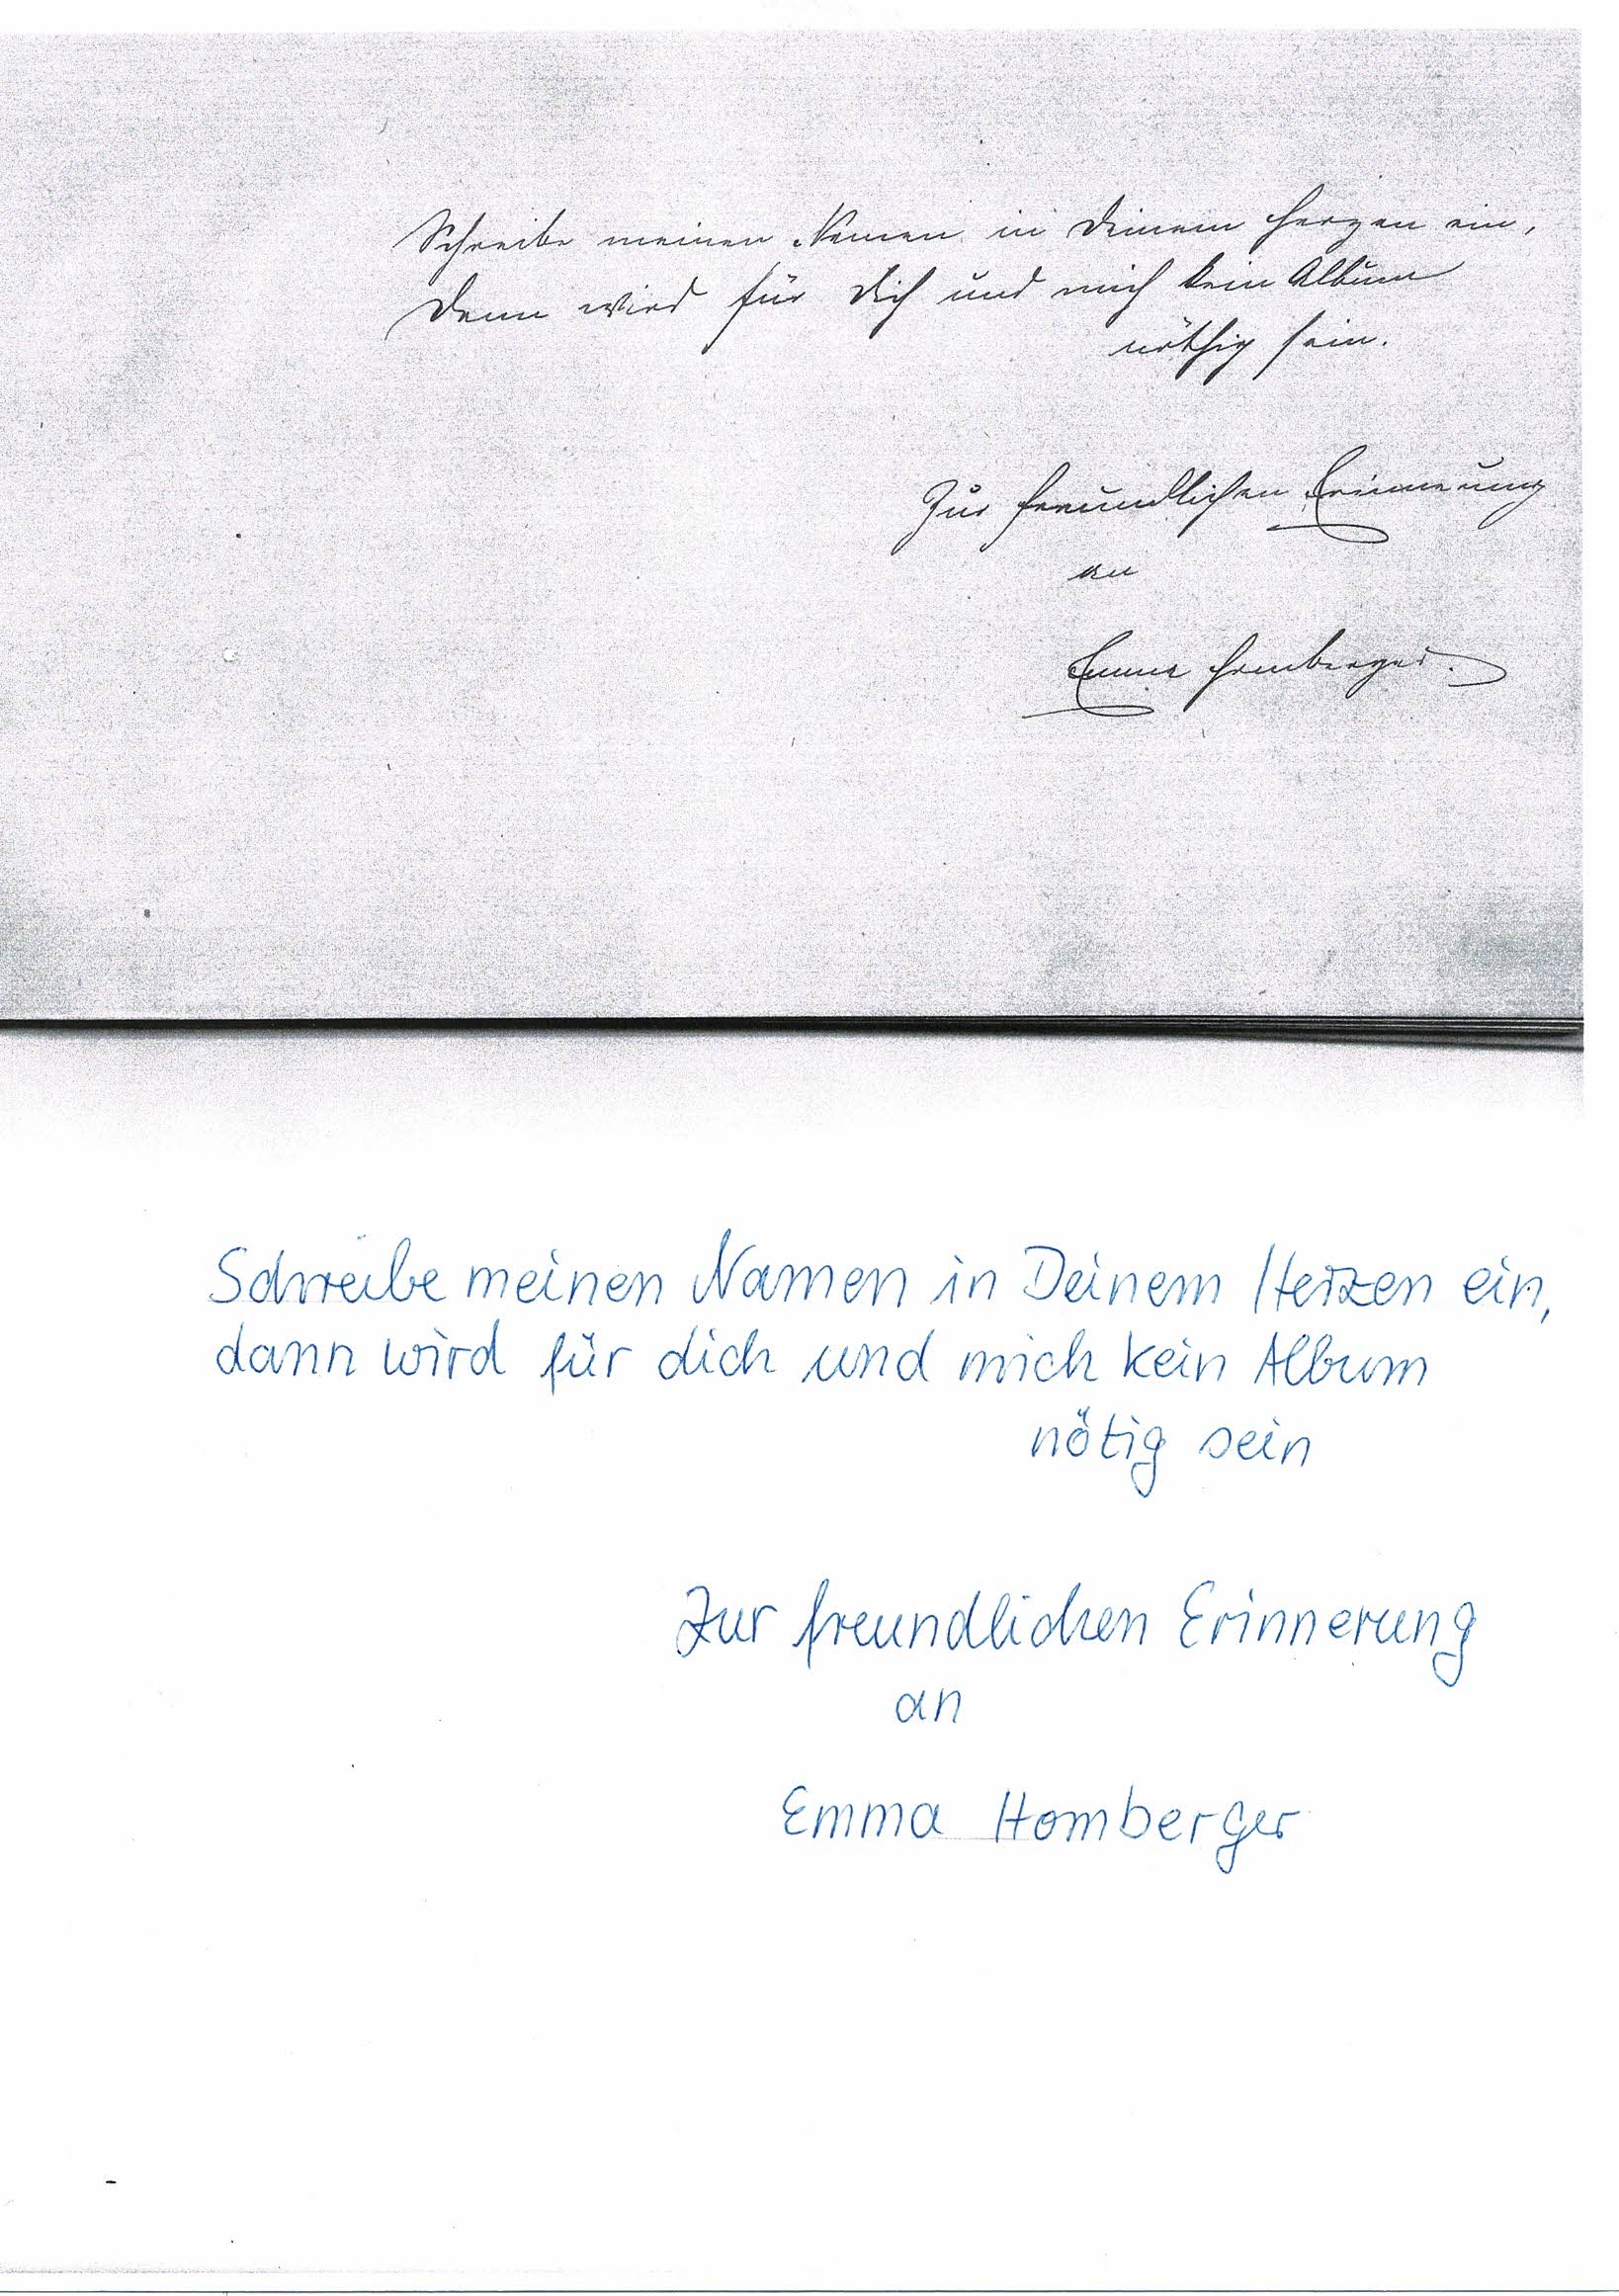 Schreibe meinen Namen in Deinem Herzen ein,
Dann wird für Dich und mich kein Album
nöthig sein.
Zur freundlichen Erinnerung
an
Emma Homberger.
Schreibe meinen Namen in Deinem Herzen ein,
dann wird für dich und mich kein Album
nötig sein
Zur freundlichen Erinnerung
an
Emma Homberger